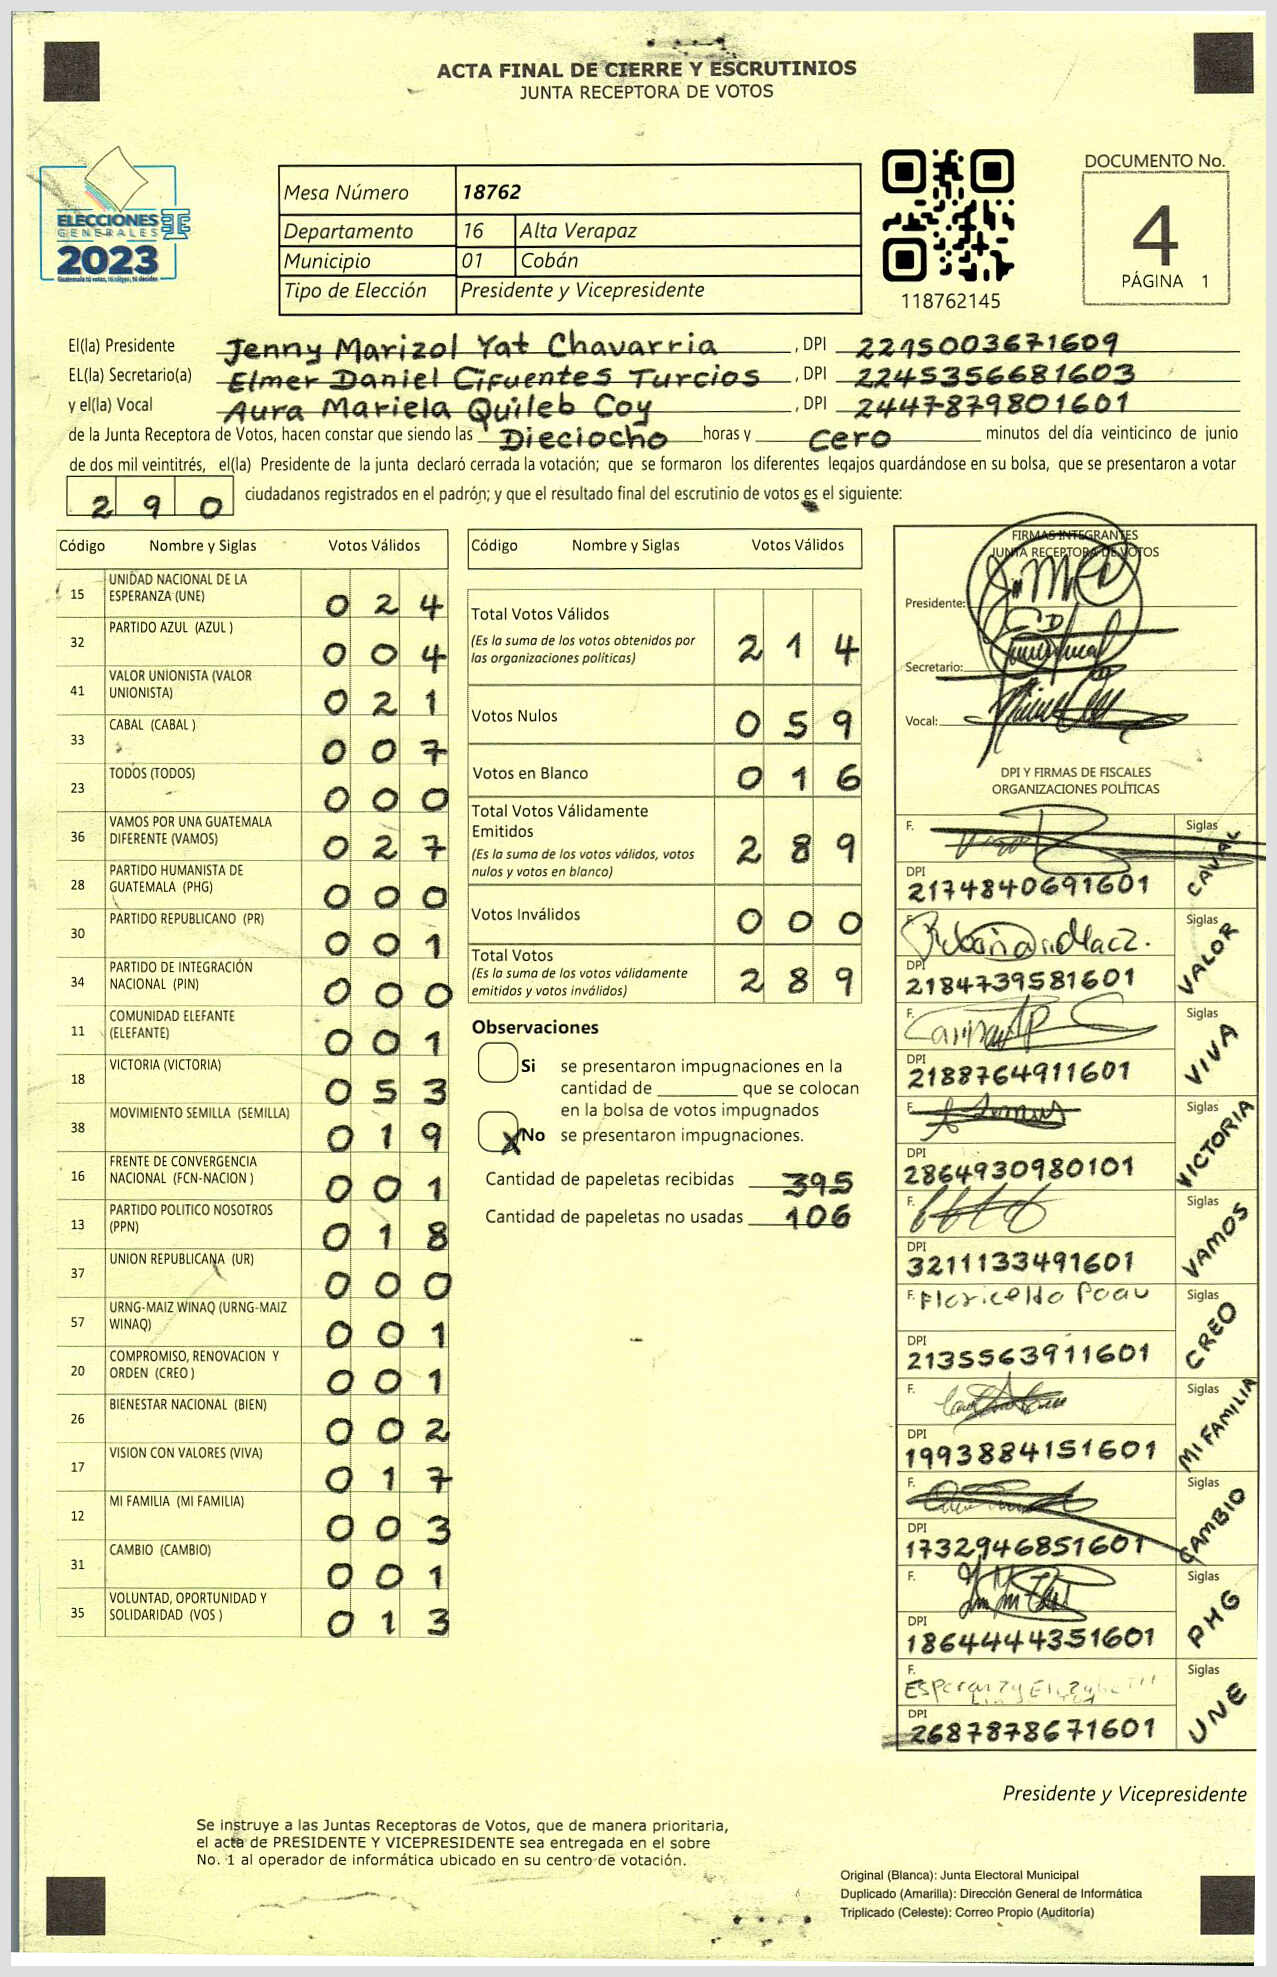 ACTA FINAL DE CIERRE Y ESCRUTINIOS
JUNTA RECEPTORA DE VOTOS
ELECCIONES
GENERALES
2023
Guatemala tú votas, tú eliges, tú decides
Mesa Número 18762
Departamento 16 Alta Verapaz
Municipio 01 Cobán
Tipo de Elección Presidente y Vicepresidente
118762145
DOCUMENTO No.
4
PÁGINA 1
El(la) Presidente Jenny Marizol Yat Chavarria , DPI 2215003671609
EL(la) Secretario(a) Elmer Daniel Cifuentes Turcios , DPI 2245356681603
y el(la) Vocal Aura Mariela Quileb Coy , DPI 2447879801601
de la Junta Receptora de Votos, hacen constar que siendo las Dieciocho horas y Cero minutos del día veinticinco de junio
de dos mil veintitrés, el(la) Presidente de la junta declaró cerrada la votación; que se formaron los diferentes legajos quardándose en su bolsa, que se presentaron a votar
290 ciudadanos registrados en el padrón; y que el resultado final del escrutinio de votos es el siguiente:
Código Nombre y Siglas Votos Válidos
15 UNIDAD NACIONAL DE LA ESPERANZA (UNE) 024
32 PARTIDO AZUL (AZUL ) 004
41 VALOR UNIONISTA (VALOR UNIONISTA) 021
33 CABAL (CABAL ) 007
23 TODOS (TODOS) 000
36 VAMOS POR UNA GUATEMALA DIFERENTE (VAMOS) 027
28 PARTIDO HUMANISTA DE GUATEMALA (PHG) 000
30 PARTIDO REPUBLICANO (PR) 001
34 PARTIDO DE INTEGRACIÓN NACIONAL (PIN) 000
11 COMUNIDAD ELEFANTE (ELEFANTE) 001
18 VICTORIA (VICTORIA) 053
38 MOVIMIENTO SEMILLA (SEMILLA) 019
16 FRENTE DE CONVERGENCIA NACIONAL (FCN-NACION ) 001
13 PARTIDO POLITICO NOSOTROS (PPN) 018
37 UNION REPUBLICANA (UR) 000
57 URNG-MAIZ WINAQ (URNG-MAIZ WINAQ) 001
20 COMPROMISO, RENOVACION Y ORDEN (CREO ) 001
26 BIENESTAR NACIONAL (BIEN) 002
17 VISION CON VALORES (VIVA) 017
12 MI FAMILIA (MI FAMILIA) 003
31 CAMBIO (CAMBIO) 001
35 VOLUNTAD, OPORTUNIDAD Y SOLIDARIDAD (VOS ) 013
Código Nombre y Siglas Votos Válidos
Total Votos Válidos 214
(Es la suma de los votos obtenidos por
las organizaciones políticas)
Votos Nulos 059
Votos en Blanco 016
Total Votos Válidamente
Emitidos 289
(Es la suma de los votos válidos, votos
nulos y votos en blanco)
Votos Inválidos 000
Total Votos 289
(Es la suma de los votos válidamente
emitidos y votos inválidos)
Observaciones
Si se presentaron impugnaciones en la
cantidad de ________ que se colocan
en la bolsa de votos impugnados
X No se presentaron impugnaciones.
Cantidad de papeletas recibidas 395
Cantidad de papeletas no usadas 106
FIRMAS INTEGRANTES
JUNTA RECEPTORA DE VOTOS
Presidente:
Secretario:
Vocal:
DPI Y FIRMAS DE FISCALES
ORGANIZACIONES POLÍTICAS
F. Siglas
DPI 2174840691601
F. Siglas VALOR
DPI 2184739581601
F. Siglas VIVA
DPI 2188764911601
F. Siglas VICTORIA
DPI 2864930980101
F. Siglas VAMOS
DPI 3211133491601
F. Siglas CREO
DPI 2135563911601
F. Siglas MI FAMILIA
DPI 1993884151601
F. Siglas CAMBIO
DPI 1732946851601
F. Siglas PHG
DPI 1864444351601
F. Esperanza Siglas UNE
DPI 2687878671601
Presidente y Vicepresidente
Se instruye a las Juntas Receptoras de Votos, que de manera prioritaria,
el acta de PRESIDENTE Y VICEPRESIDENTE sea entregada en el sobre
No. 1 al operador de informática ubicado en su centro de votación.
Original (Blanca): Junta Electoral Municipal
Duplicado (Amarilla): Dirección General de Informática
Triplicado (Celeste): Correo Propio (Auditoría)